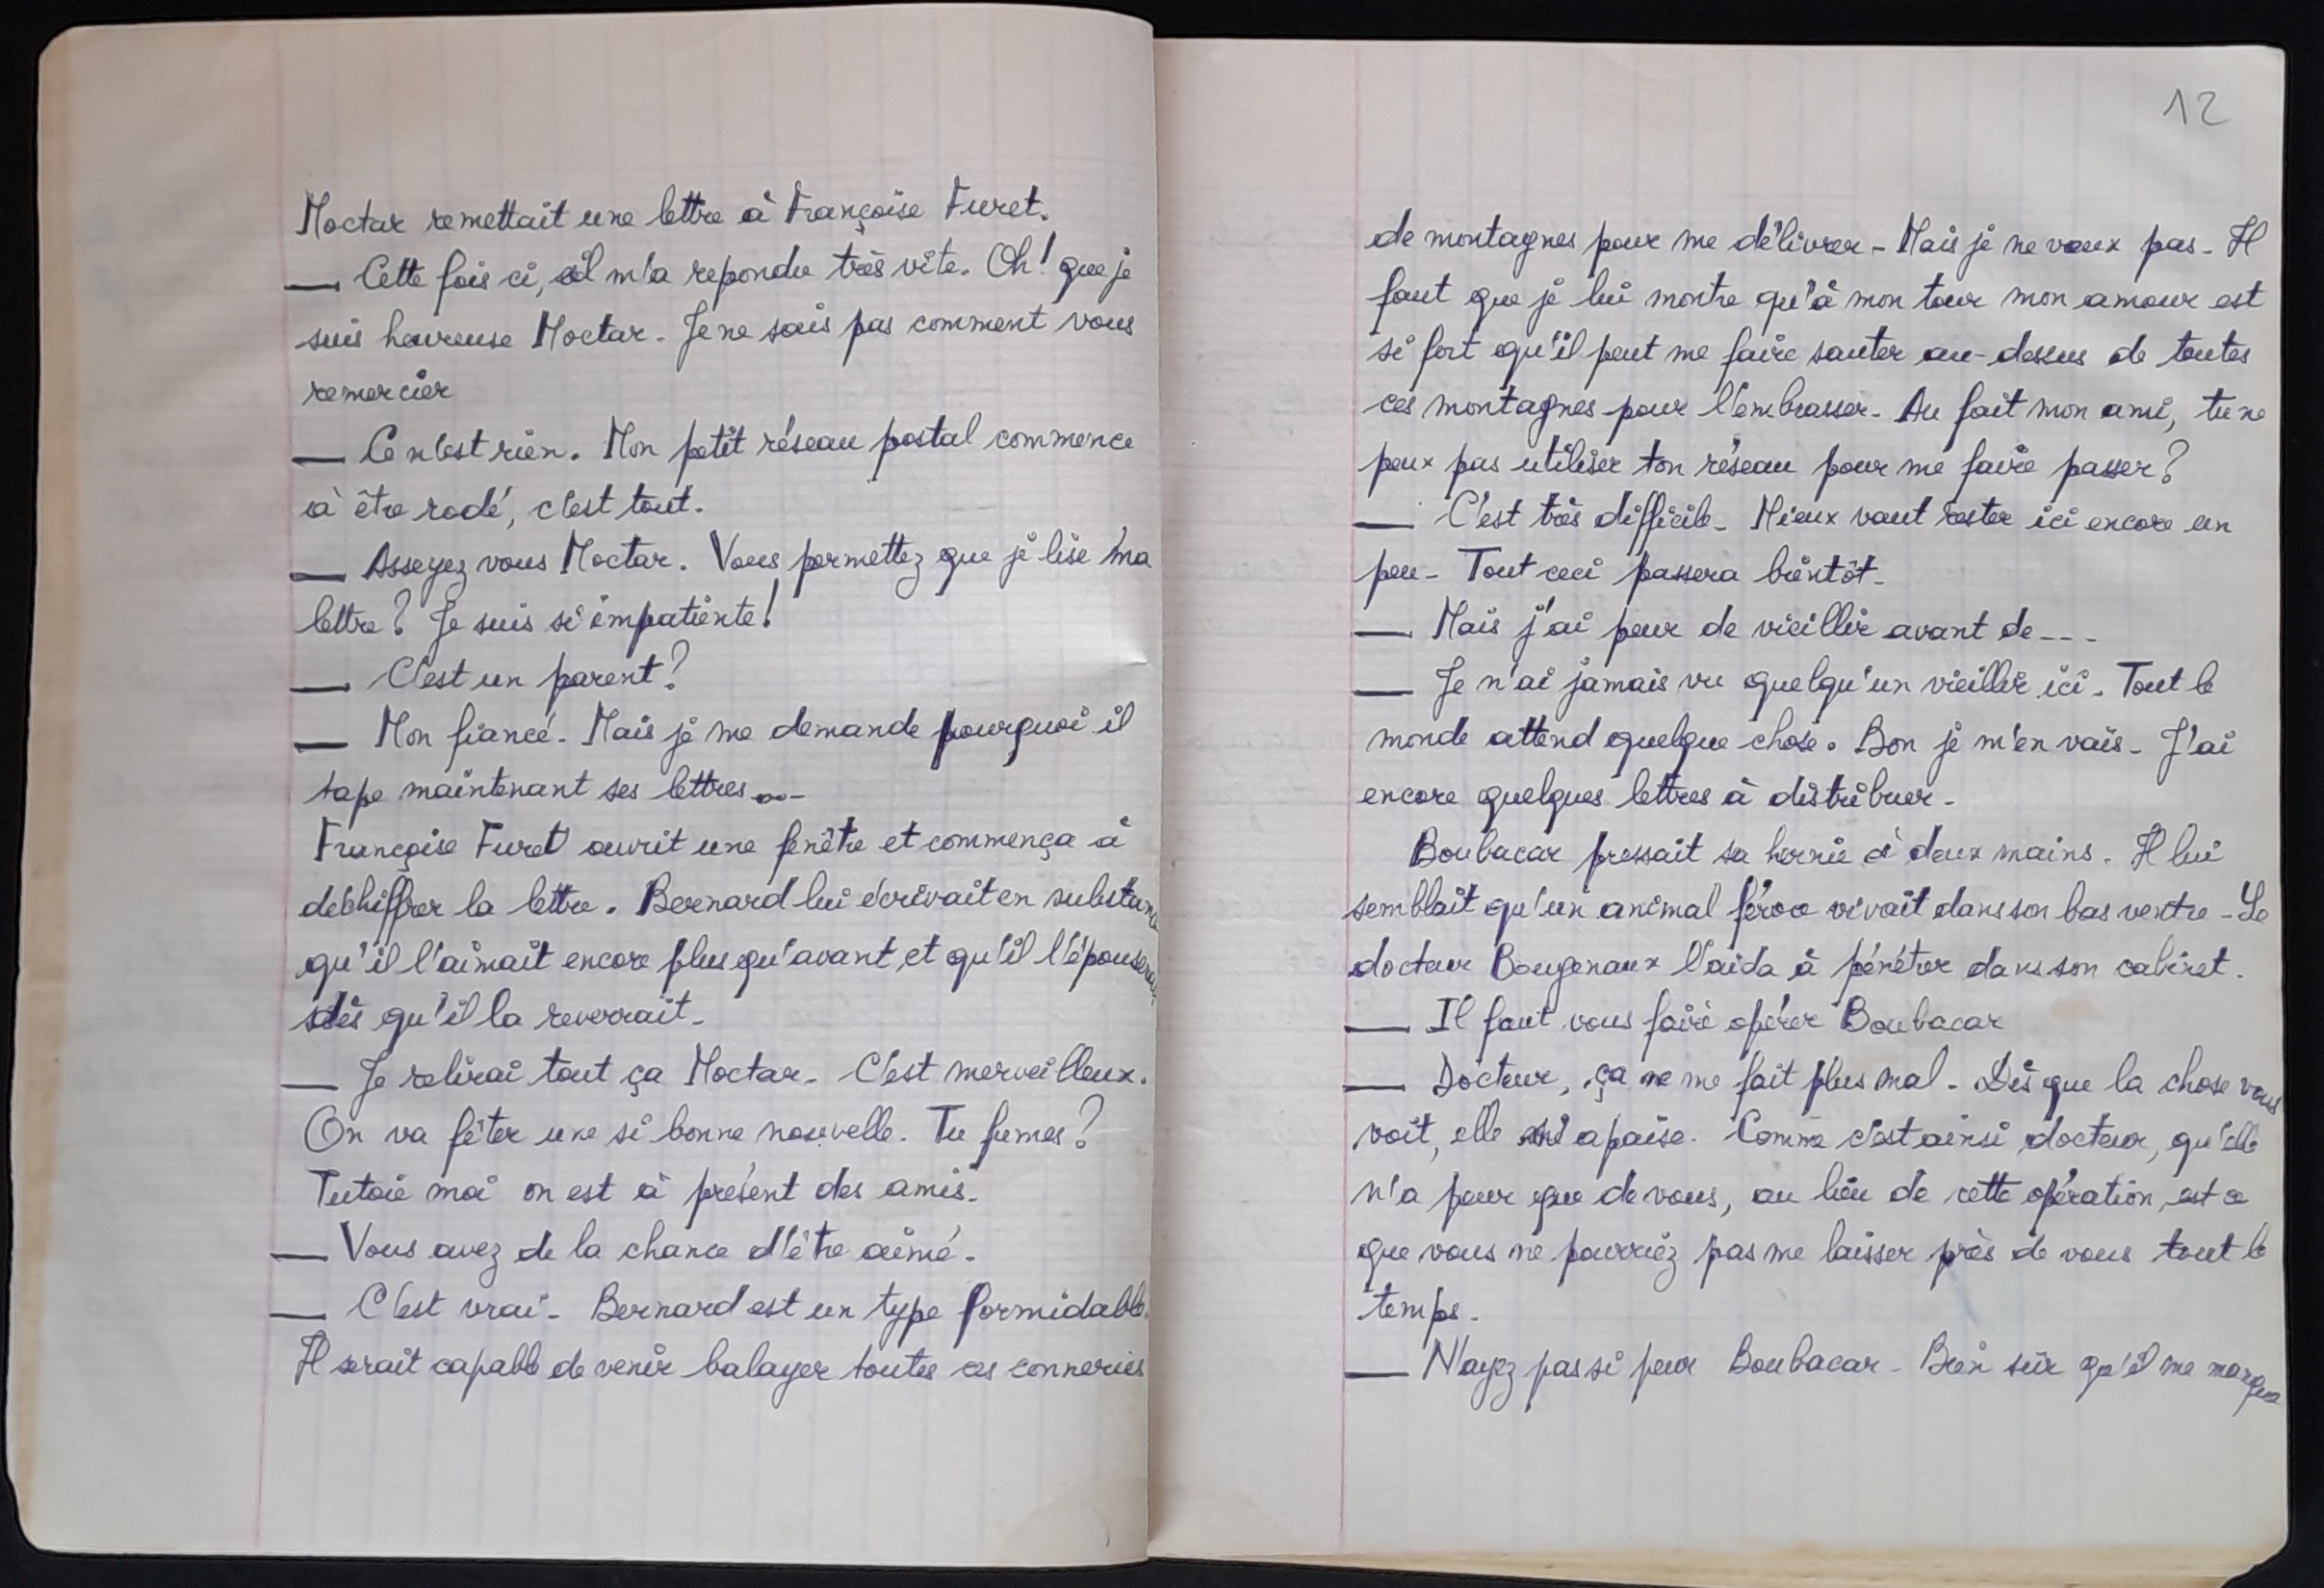 Moctar remettait une lettre à Françoise Furet.
— Cette fois ci, il m'a repondu très vite. Oh! que je
suis heureuse Moctar. Je ne sais pas comment vous
remercier
— Ce n'est rien. Mon petit réseau postal commence
à être rodé, c'est tout.
— Asseyez vous Moctar. Vous permettez que je lise ma
lettre? Je suis si impatiente!
— C'est un parent?
— Mon fiancé. Mais je me demande pourquoi il
tape maintenant ses lettres...
Françoise Furet ouvrit une fenêtre et commença à
déchiffrer la lettre. Bernard lui écrivait en substance
qu'il l'aimait encore plus qu'avant et qu'il l'épouserait
dès qu'il la reverrait.
— Je relirai tout ça Moctar. C'est merveilleux.
On va fêter une si bonne nouvelle. Tu fumes?
Tutoie moi on est à présent des amis.
— Vous avez de la chance d'être aimé.
— C'est vrai. Bernard est un type formidable.
Il serait capable de venir balayer toutes ces conneries
12
de montagnes pour me délivrer. Mais je ne veux pas. Il
faut que je lui montre qu'à mon tour mon amour est
si fort qu'il peut me faire sauter au-dessus de toutes
ces montagnes pour l'embrasser. Au fait mon ami, tu ne
peux pas utiliser ton réseau pour me faire passer?
— C'est très difficile. Mieux vaut rester ici encore un
peu. Tout ceci passera bientôt.
— Mais j'ai peur de vieillir avant de...
— Je n'ai jamais vu quelqu'un vieillir ici. Tout le
monde attend quelque chose. Bon je m'en vais. J'ai
encore quelques lettres à distribuer.
Boubacar pressait sa hernie à deux mains. Il lui
semblait qu'un animal féroce vivait dans son bas ventre. Le
docteur Bougenaux l'aida à pénétrer dans son cabinet.
— Il faut vous faire opérer Boubacar
— Docteur, ça ne me fait plus mal. Dès que la chose vous
voit, elle s'apaise. Comme c'est ainsi docteur, qu'elle
n'a peur que de vous, au lieu de cette opération, est ce
que vous ne pourriez pas me laisser près de vous tout le
temps.
— N'ayez pas si peur Boubacar. Bien sûr qu'il me manque